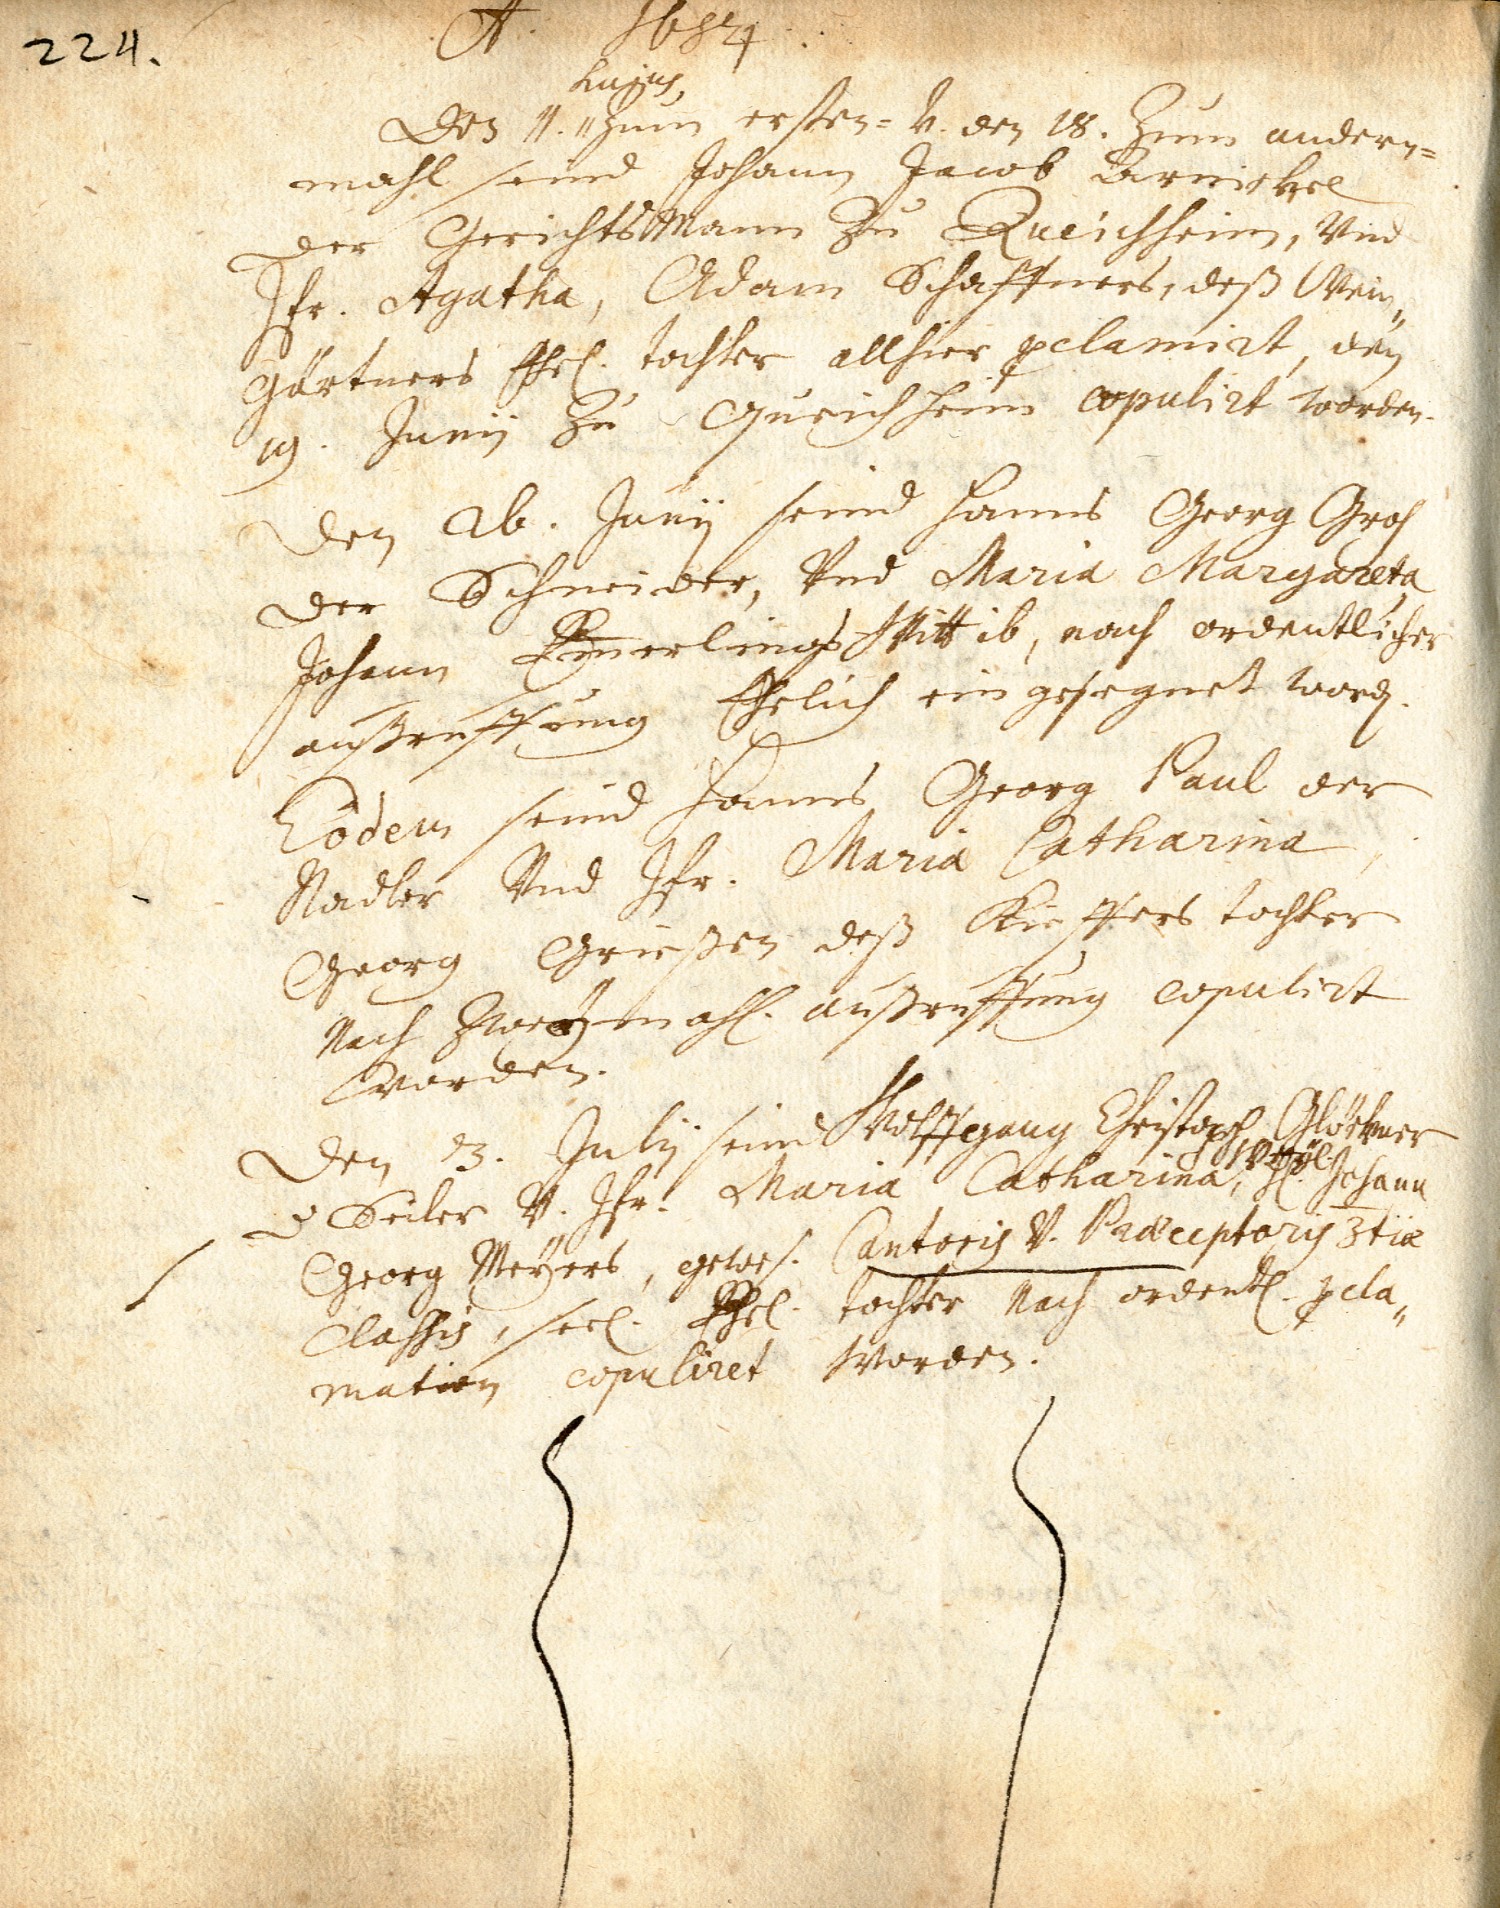 224.
A. 1684
hujus,
Den 11. zum ersten= v. den 18. Zum andern=
mahl seind Johann Jacob Barnickel
der GerichtsMann zu Queichheim, Vnd
Jfr. Agatha, Adam Schaffners, deß Wein„
gärtners Ehel. tochter allhier pclamirt, den
19. Junij zu Queichheim copulirt worden.
Den 26. Junij seind Hanns Georg Groß
der Schneider, Vnd Maria Margareta
Johann Wittib, nach ordentlicher
außruffung Ehelich eingesegnet word.
Eodem seind Hanns Georg Paul der
Nadler Vnd Jfr. Maria Catharina,
Georg Grießen deß Kieffers tochter
Nach Zweymahl. außruffung copulirt
Worden.
Den 23. Julij seind Wolffgang Christoph Glöckner
d Seiler V. Jfr. Maria Catharina, Weyl. H. Johann
Georg Meÿers, gewes. Cantoris V. Præceptoris 3tiæ
Classis, seel. Ehel. tochter Nach ordentl. pcla„
mation copuliret Worden.